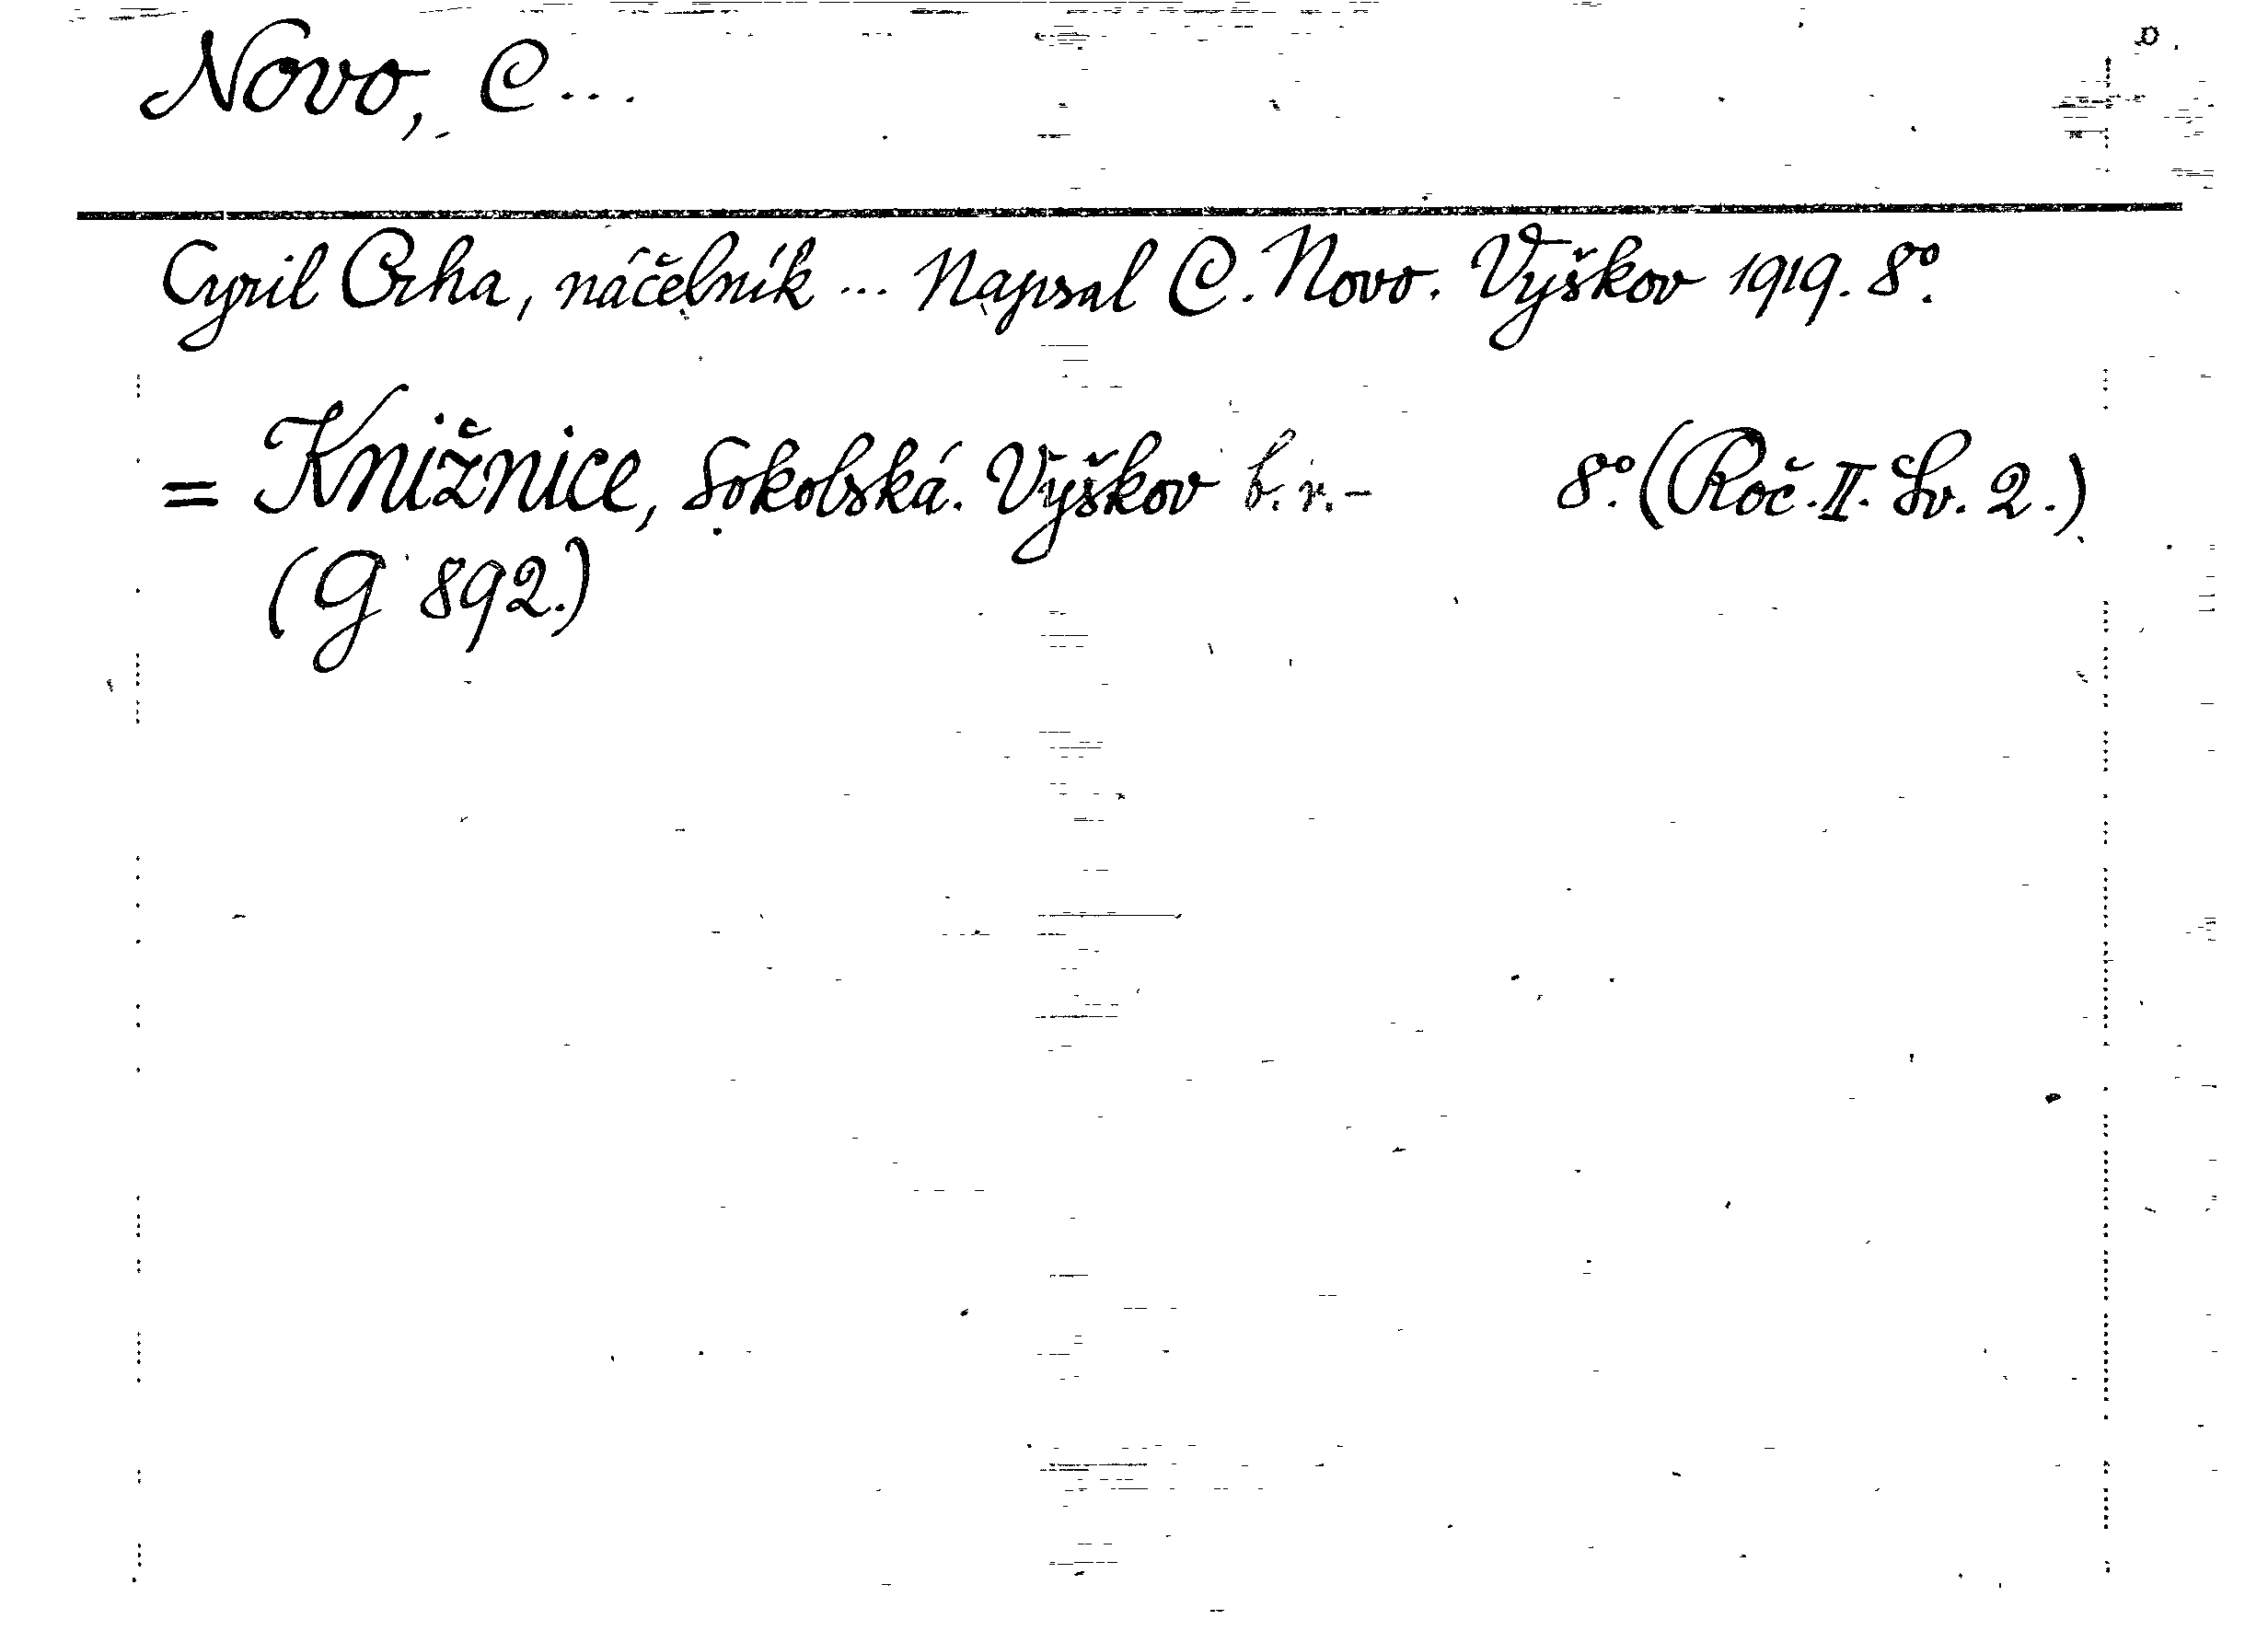 Novo, C...
Cyril Crha, náčelník ... Napsal C. Novo. Vyškov 1919. 8º.
= Knižnice, Sokolská. Vyškov b. r. - 8º. (Roč. II. Sv. 2.)
(G 892.)